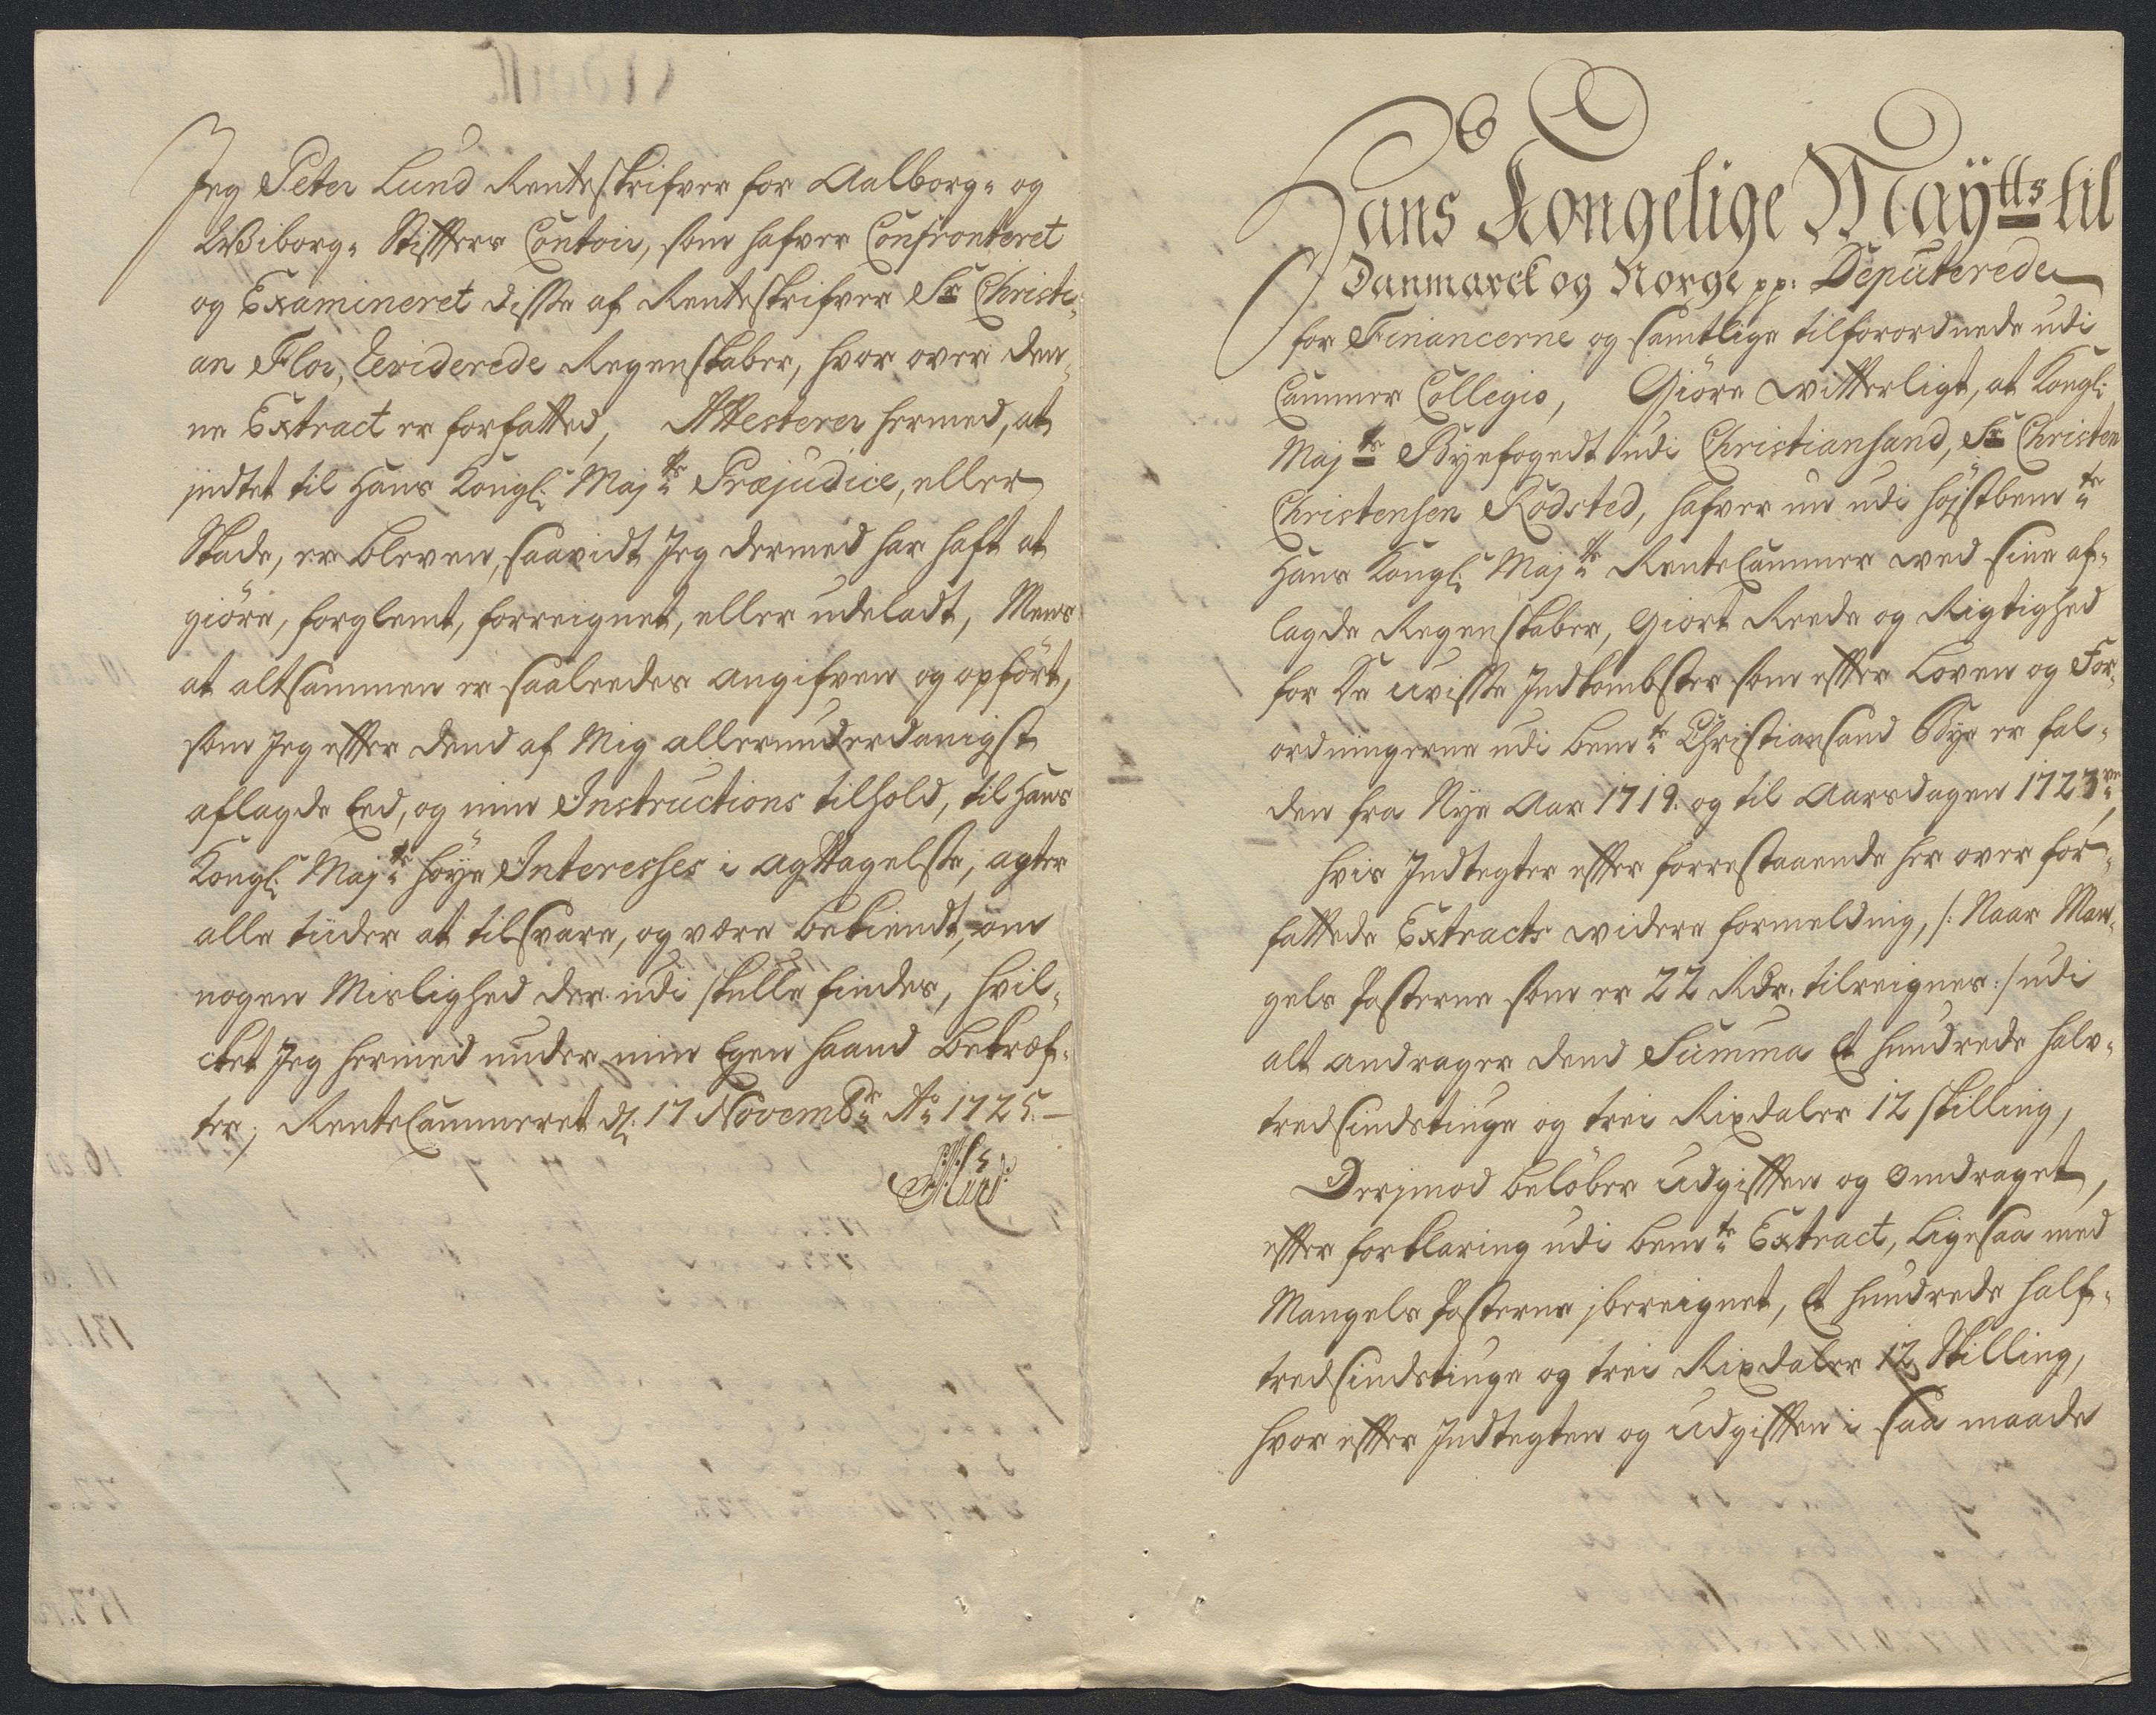 Jeg Peter Lund Renteskrifver for Aalborg- og
Wiborg- Stifters Contoir, som hafver Confronteret
og Examineret disse af Renteskrifver Sr Christi-
an Flor, Reviderede Regenskaber, hvor over den-
ne Extract er forfatted, Attesterer hermed, at
jndtet til Hans Kongl: Majts Præjudice, eller
Skade, er bleven, saavidt Jeg dermed har haft at
giöre, forglemt, forreignet, eller udeladt, Mens
at altsammen er saaleedes angifven og opfört,
som Jeg efter dend af Mig allerunderdanigst
aflagde Eed, og min Instructions tilhold, til Hans
Kongl: Majts höye Interesses i agttagelse, agter
alle tiider at tilsvare, og være bekiendt, om
nogen Mislighed der udi skulle findes, hvil-
cket Jeg hermed under min Egen haand bekræf-
ter; RenteCammeret dl: 17 Novembr Ao 1725.
PLund
Hans Kongelige Maÿtts til
Danmarck og Norge pp: Deputerede
for Financerne og samtlige tilforordnede udi
Cammer Collegio, Giöre witterligt, at Kongl:
Majts Byefogedt udi Christiansand, Sr Christen
Christensen Rodsted, hafver nu udi höjstbemte
Hans Kongl: Majts RenteCammer wed sine af-
lagde Regenskaber, Giort Reede og Rigtighed
for De Uvisse Indkombster som efter Loven og For-
ordningerne udi bemte Christiansand Bye er fal-
den fra Nye Aar 1719. og til Aarsdagen 1723.
hvis Indtegter efter forrestaaende her over for-
fattede Extracts widere formelding, /: Naar Man-
gels Posterne som er 22 Rdr. tilreignes :/ udi
alt andrager dend Summa Et hundrede halv-
tredsindstiuge og trei Rixdaler 12 skilling,
Derjmod belöber Udgiften og Omdraget,
efter forklaring udi bemte Extract, ligesaa med
Mangels Posterne jbereignet, Et hundrede half-
tredsindstiuge og trei Rixdaler 12 Skilling,
hvor efter Indtegten og Udgiften i saa maade